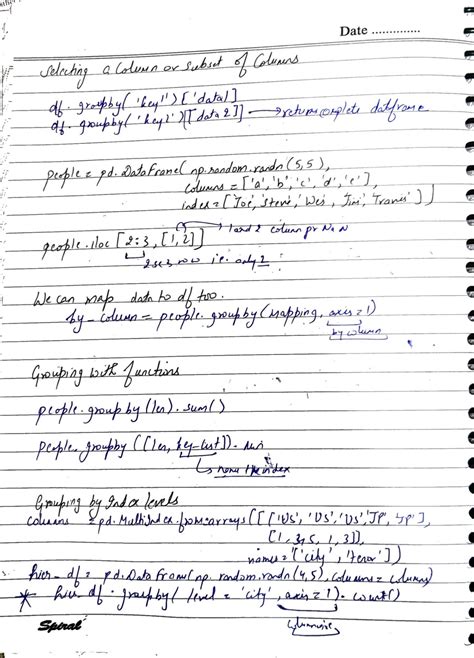 Date ..............
Selecting a Column or Subset of Columns
df.groupby('key1')['data1]
df.groupby('key1')[[data2]] → returns complete dataframe
people = pd.DataFrame(np.random.randn(5,5),
columns = ['a','b','c','d','e'],
index = ['Joe','Steve','Wes','Jim','Travis'])
people.iloc[2:3, [1,2]] → 1 and 2 column pr NaN
2 se 3 row i.e. only 2
We can map data to df too.
by_column = people.groupby(mapping, axis=1)
by column
Grouping with functions
people.groupby(len).sum()
people.groupby([len, key_list]).min
→ the index
Grouping by Index levels
columns = pd.MultiIndex.from_arrays([['US','US','US','JP','JP'],
[1,3,5,1,3]],
names=['city','tenor'])
hier_df = pd.DataFrame(np.random.randn(4,5), columns = columns)
* hier_df.groupby(level='city', axis=1).count()
columnwise
Spiral